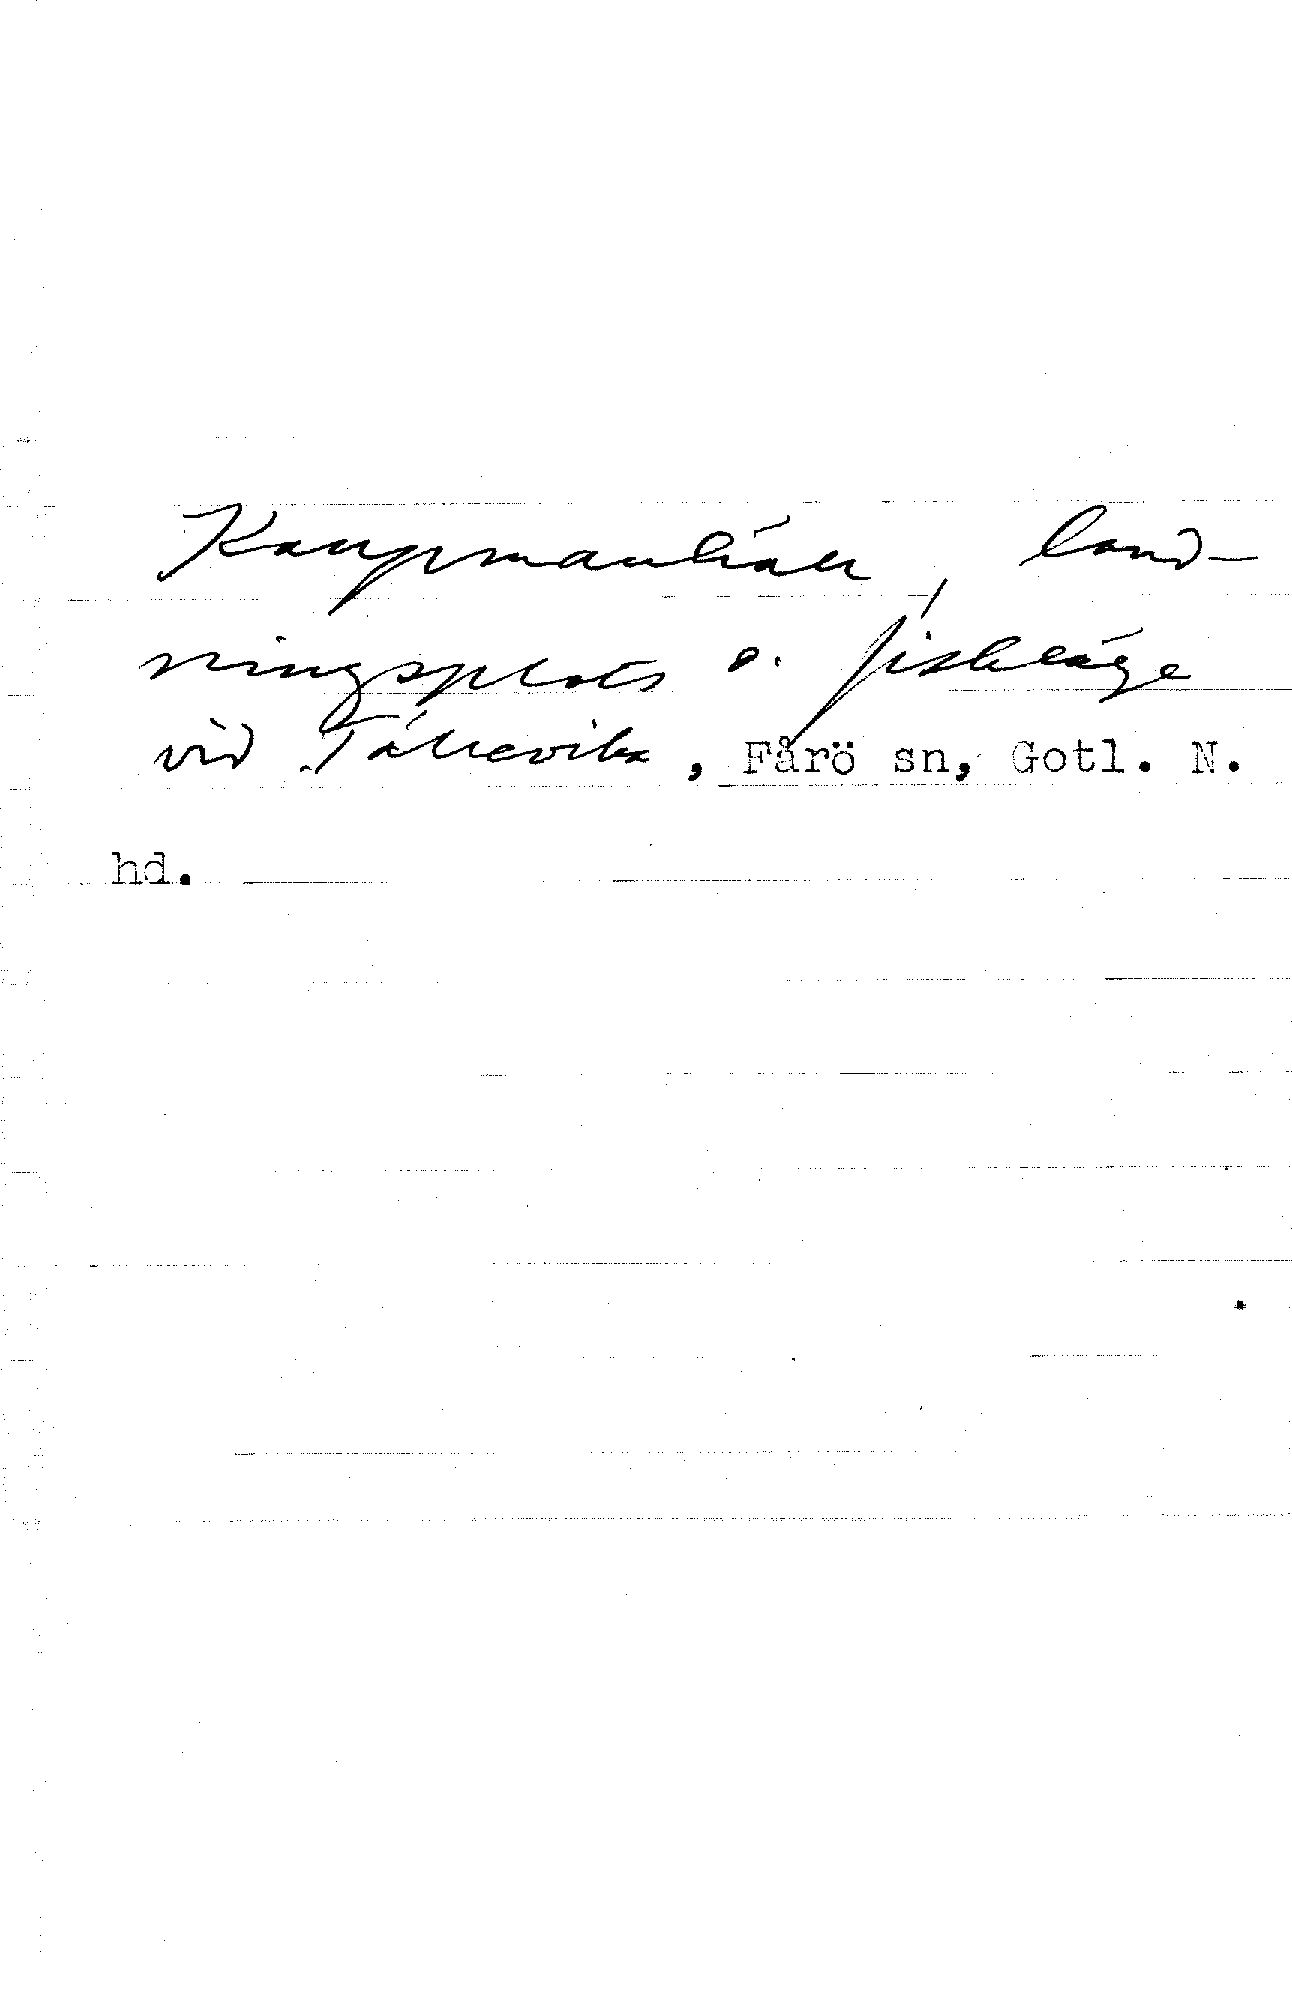 Kaupmanhäll, land-
ningsplats o. fiskläge
vid Tällevika, Fårö sn, Gotl. N.
hd.